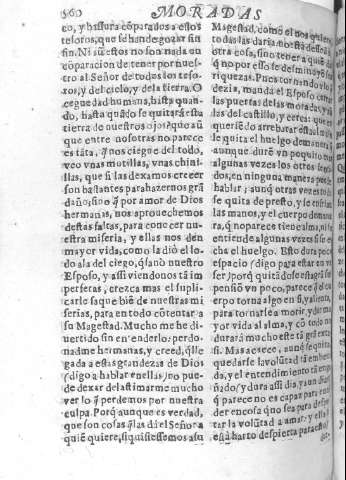 560 MORADAS
co, y basura cõparados a estos
tesoros, que se hande gozar sin
fin. Ni aũ estos no son nada en
cõparacion de tener por nues-
tro al Señor de todos los teso-
ros, y del cielo, y de la tierra. O
ceguedad humana, hasta quan-
do, hasta quãdo se quitará esta
tierra de nuestros ojos; que aũ
que entre nosotras no parece
es tãta, q̃ nos ciegue del todo,
veo vnas motillas, vnas chini-
llas, que si las dexamos creçer
son bastantes para hazernos grã
daño; sino q̃ por amor de Dios
hermanas, nos aprouechemos
destas faltas, para conocer nu-
estra miseria, y ellas nos den
mayor vista, como la dió el lo-
do a la del ciego, q̃ sanó nuestro
Esposo, y assi viendonos tã im-
perfetas, crezca mas el supli-
carle saque biẽ de nuestras mi
serias, para en todo cõtentar a
su Magestad. Mucho me he di-
uertido sin entenderlo: perdo-
nadme hermanas, y creed, q̃ lle
gada a estas grandezas de Dios
(digo a hablar en ellas) no pue-
de dexar de lastimarme mucho
ver lo q̃ perdemos por nuestra
culpa. Porq̃ aunque es verdad,
que son cosas q̃ las dá el Señor a
quiẽ quiere, si quisiessemos a su
Magestad, como el nos quiere,
todas las daria: no está desseãdo
otra cosa, sino tener a quiẽ dar,
q̃ no por esso se desminuyẽ sus
riquezas. Pues tornando a lo q̃
dezia, manda el Esposo cerrar
las puertas de las moradas, y aũ
las del castillo, y cerca: que en
queriẽdo arrebatar esta alma,
se le quita el huelgo de manera, q̃
aunque durẽ vn poquito mas
algunas vezes los otros senti-
dos, en ninguna manera puede
hablar; aunq̃ otras vezes todo
se quita de presto, y se enfrian
las manos, y el cuerpo de mane-
ra, q̃ no parece tiene alma, ni se
entiende algunas vezes si se e-
cha el huelgo. Esto dura poco
espacio (digo para estar en vn
ser) porq̃ quitãdose esta grã sus
pensiõ vn poco, parece q̃ el cu-
erpo torna algo en si, y alienta,
para tornarse a morir, y dar ma
yor vida al alma, y cõ todo no
durará mucho este tã grã exta-
si. Mas acaece, aunq̃ se quita,
quedarse la volũtad tã embeui
da, y el entendimiento tã enage
nado, y dura assi dia, y aun dias,
q̃ parece no es capaz para enten
der en cosa q̃ no sea para desper
tar la volũtad a amar: y ella se
está harto despierta para esto,